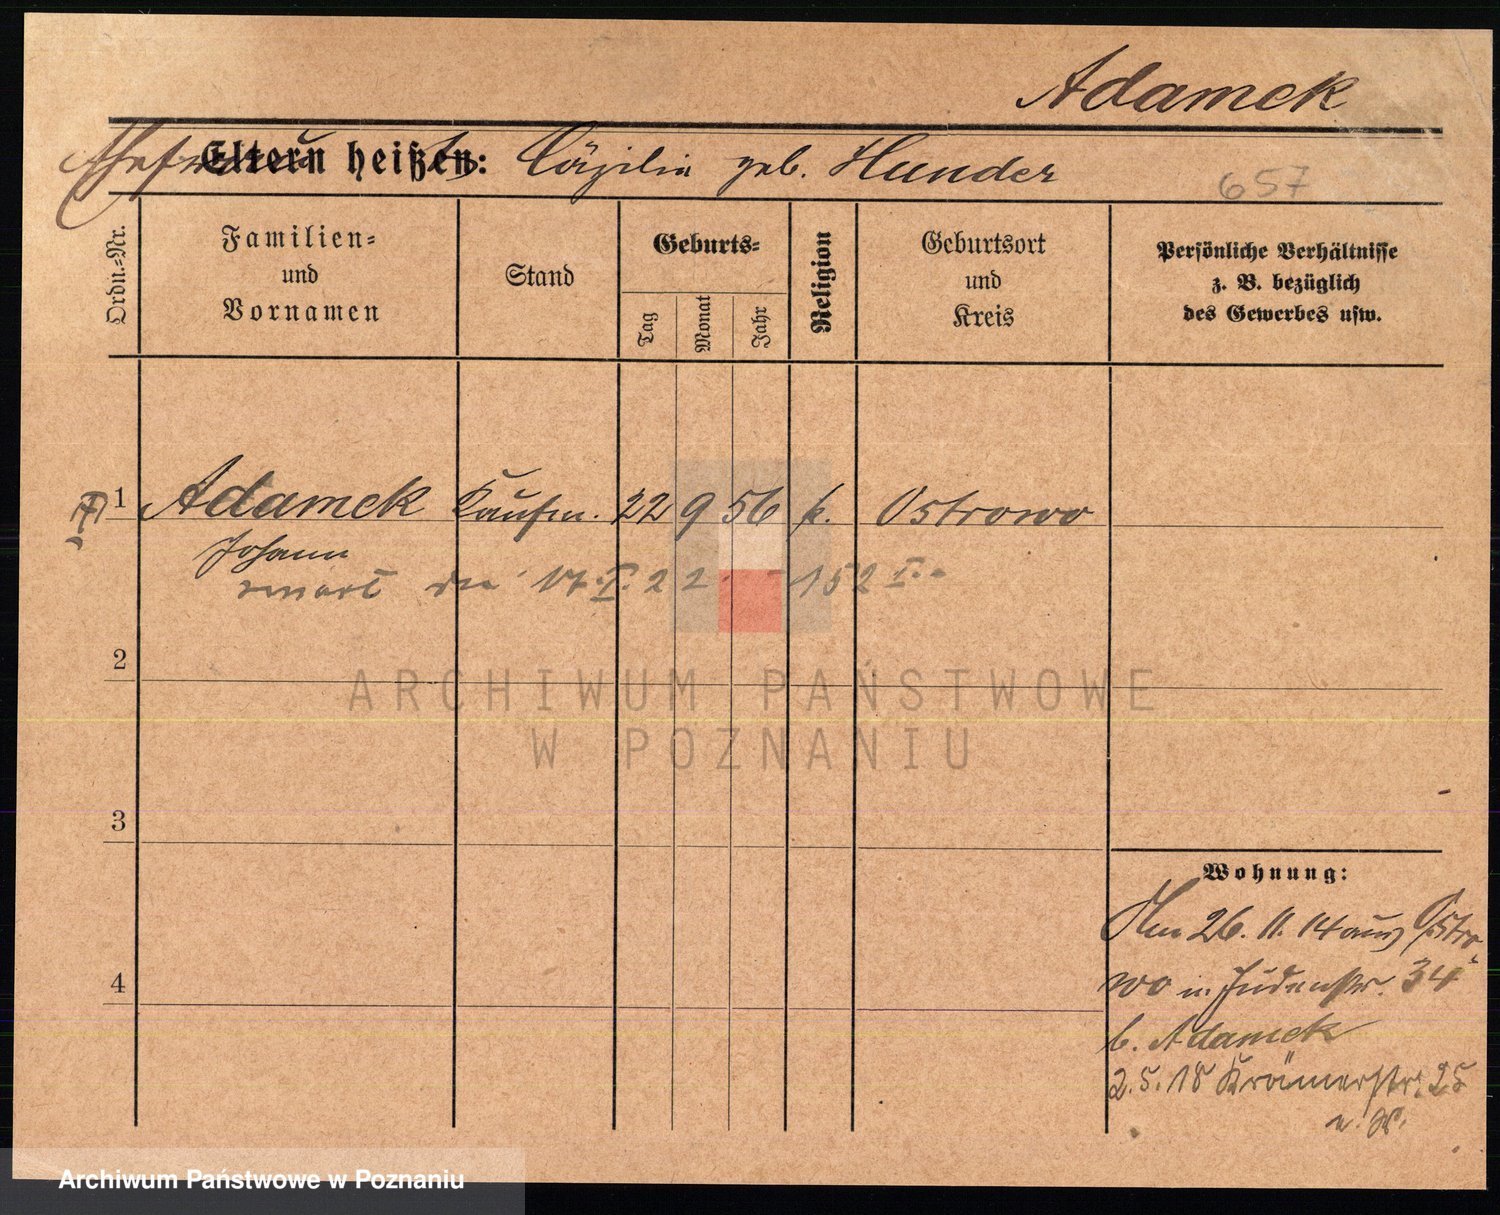 Adamek
Eltern heißen: Cäzilia geb. Hunder
657
Ordn.-Nr.
Familien-
und
Vornamen
Stand
Geburts-
Tag
Monat
Jahr
Religion
Geburtsort
und
Kreis
Persönliche Verhältnisse
z. B. bezüglich
des Gewerbes usw.
1 Adamek Kaufm. 22 9 56 k. Ostrowo
Johann
17. I. 22 152 I.
2
ARCHIWUM PAŃSTWOWE
W POZNANIU
3
4
Wohnung:
26. 11. 14 aus Ostro-
wo in Judenstr. 34
b. Adamek
2.5.18 Krämerstr. 25
Archiwum Państwowe w Poznaniu